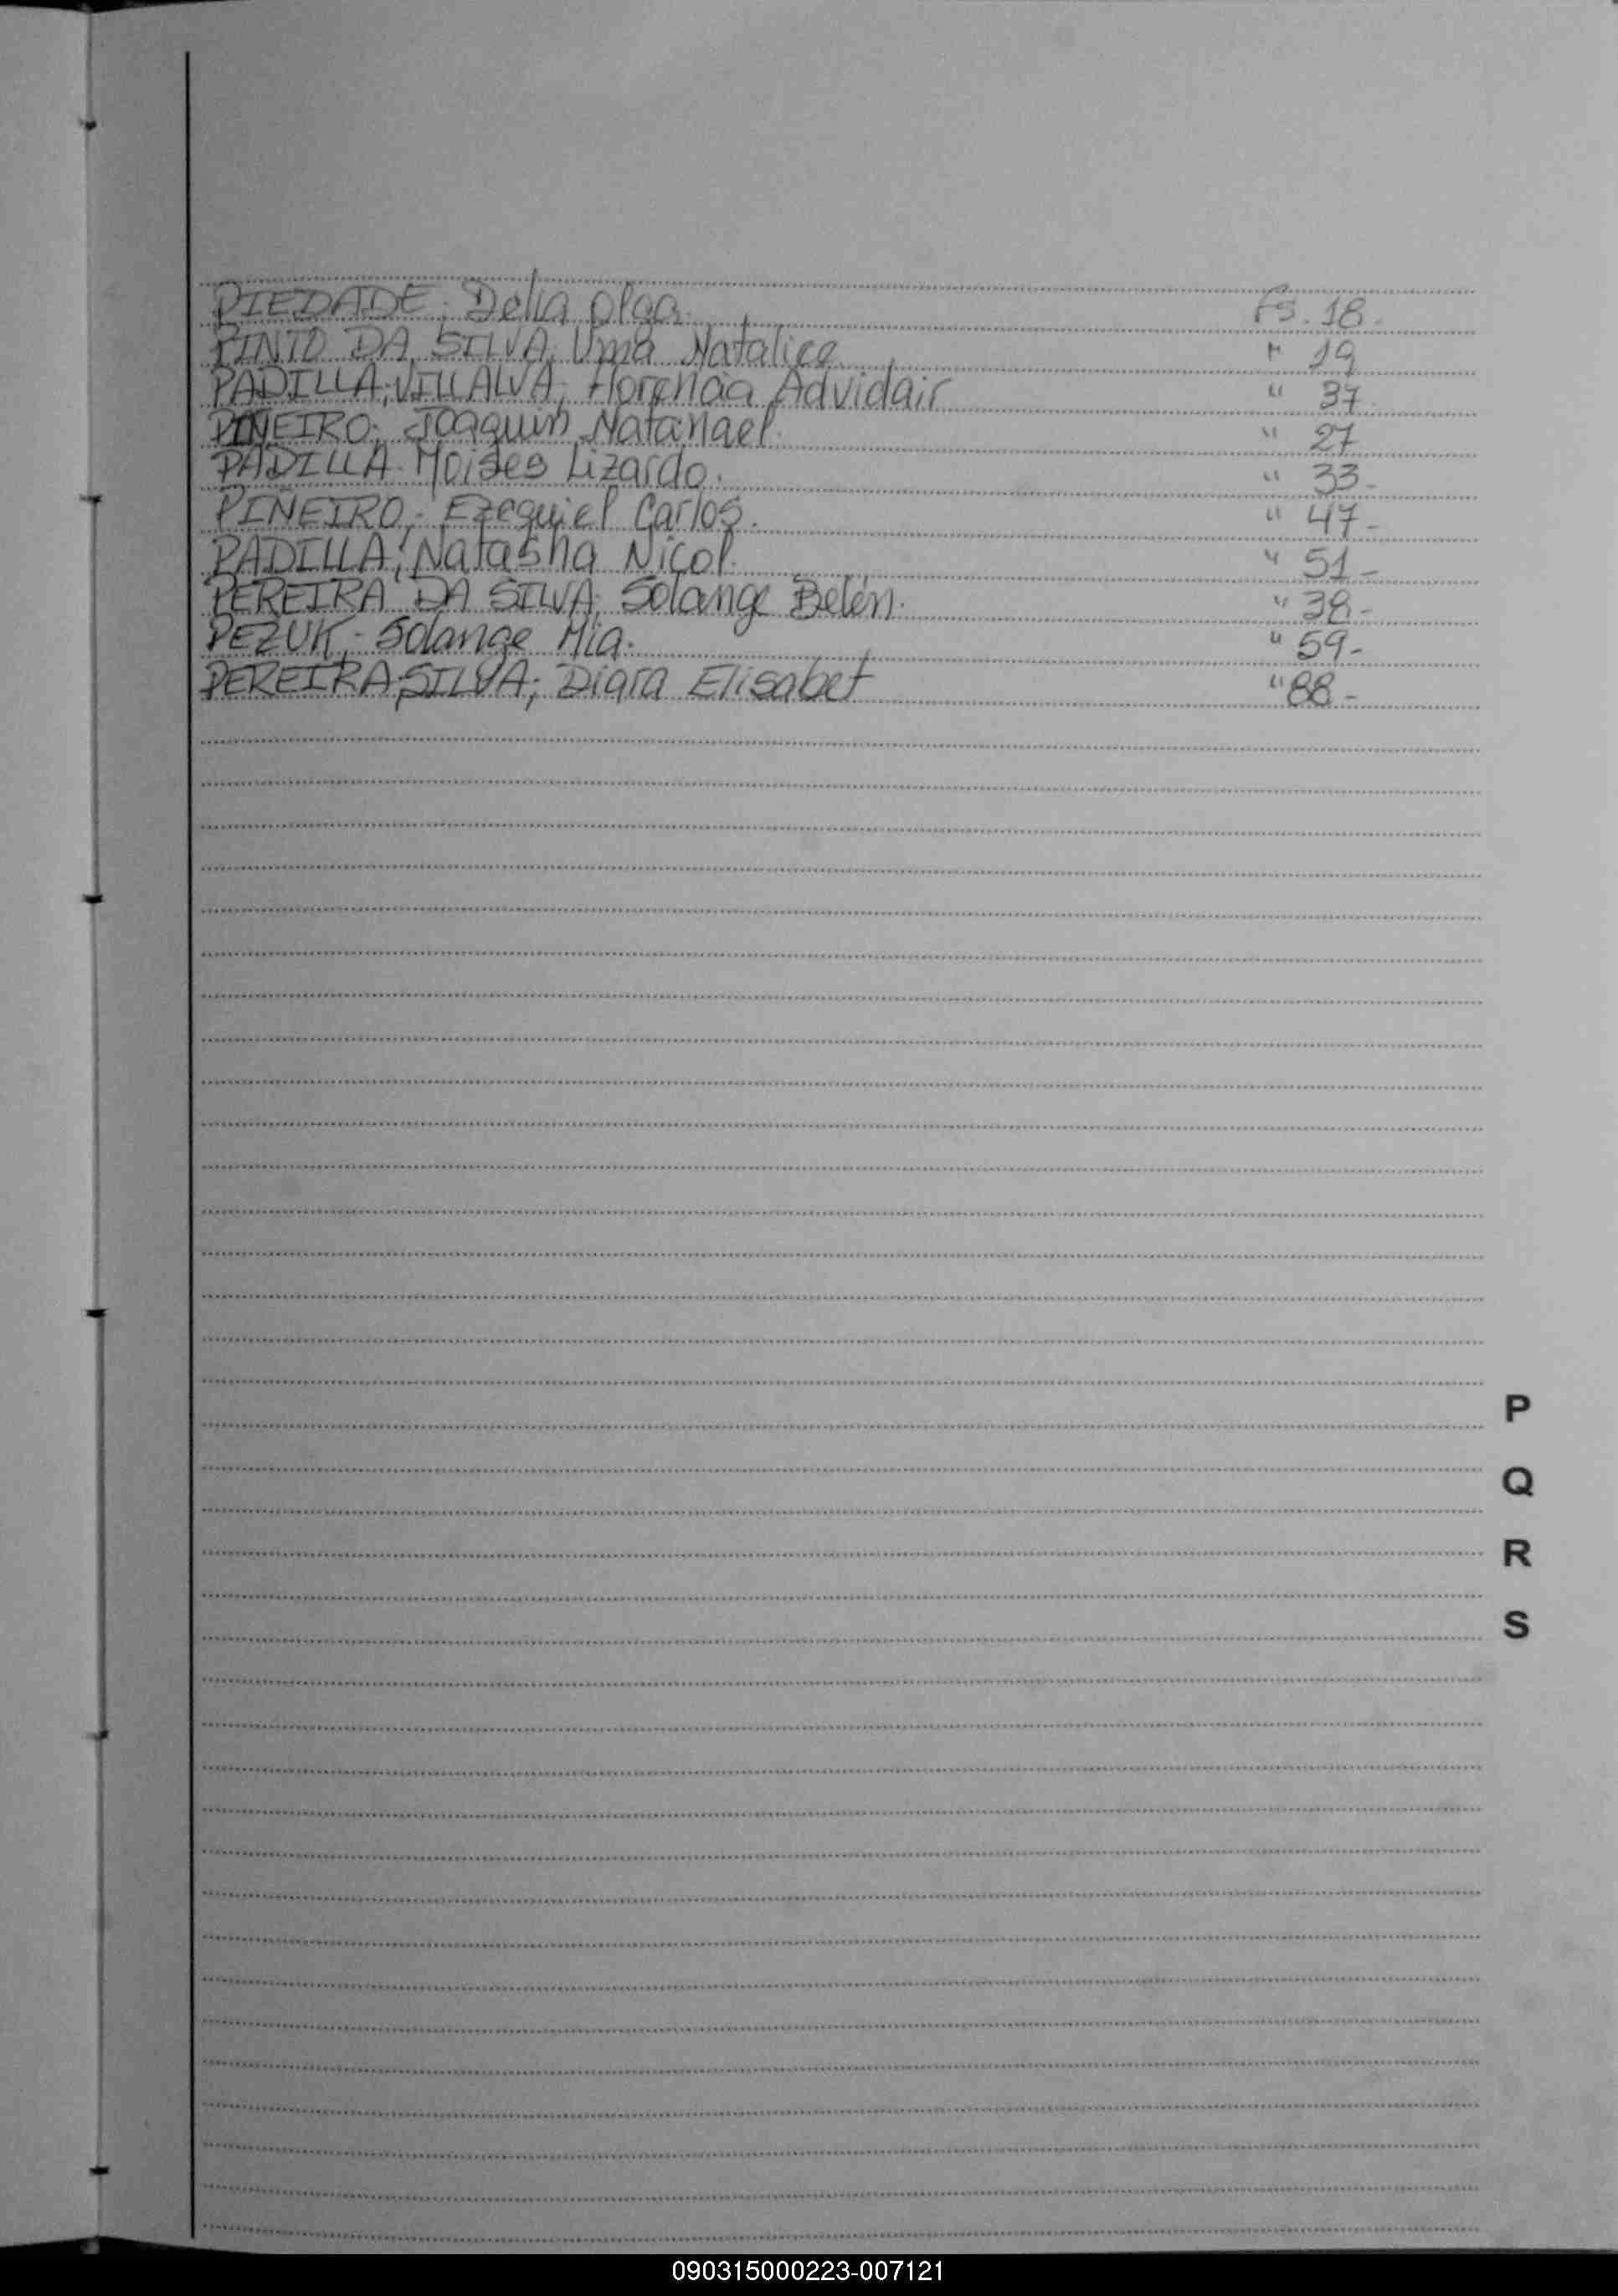 PIEDADE; Delia Olga. Fs. 18.-
PINTO DA SILVA; Uma Natalice. " 19
PADILLA VILLALVA; Florencia Advidair " 37.
PIÑEIRO; Joaquin Natanael. " 27
PADILLA. Moises Lizardo. " 33-
PIÑEIRO;- Ezequiel Carlos. " 47-
PADILLA; Natasha Nicol. " 51-
PEREIRA DA SILVA; Solange Belén. " 38-
PEZUK;- Solange Mia. " 59-
PEREIRA SILVA; Diara Elisabet " 88-
P
Q
R
S
090315000223-007121